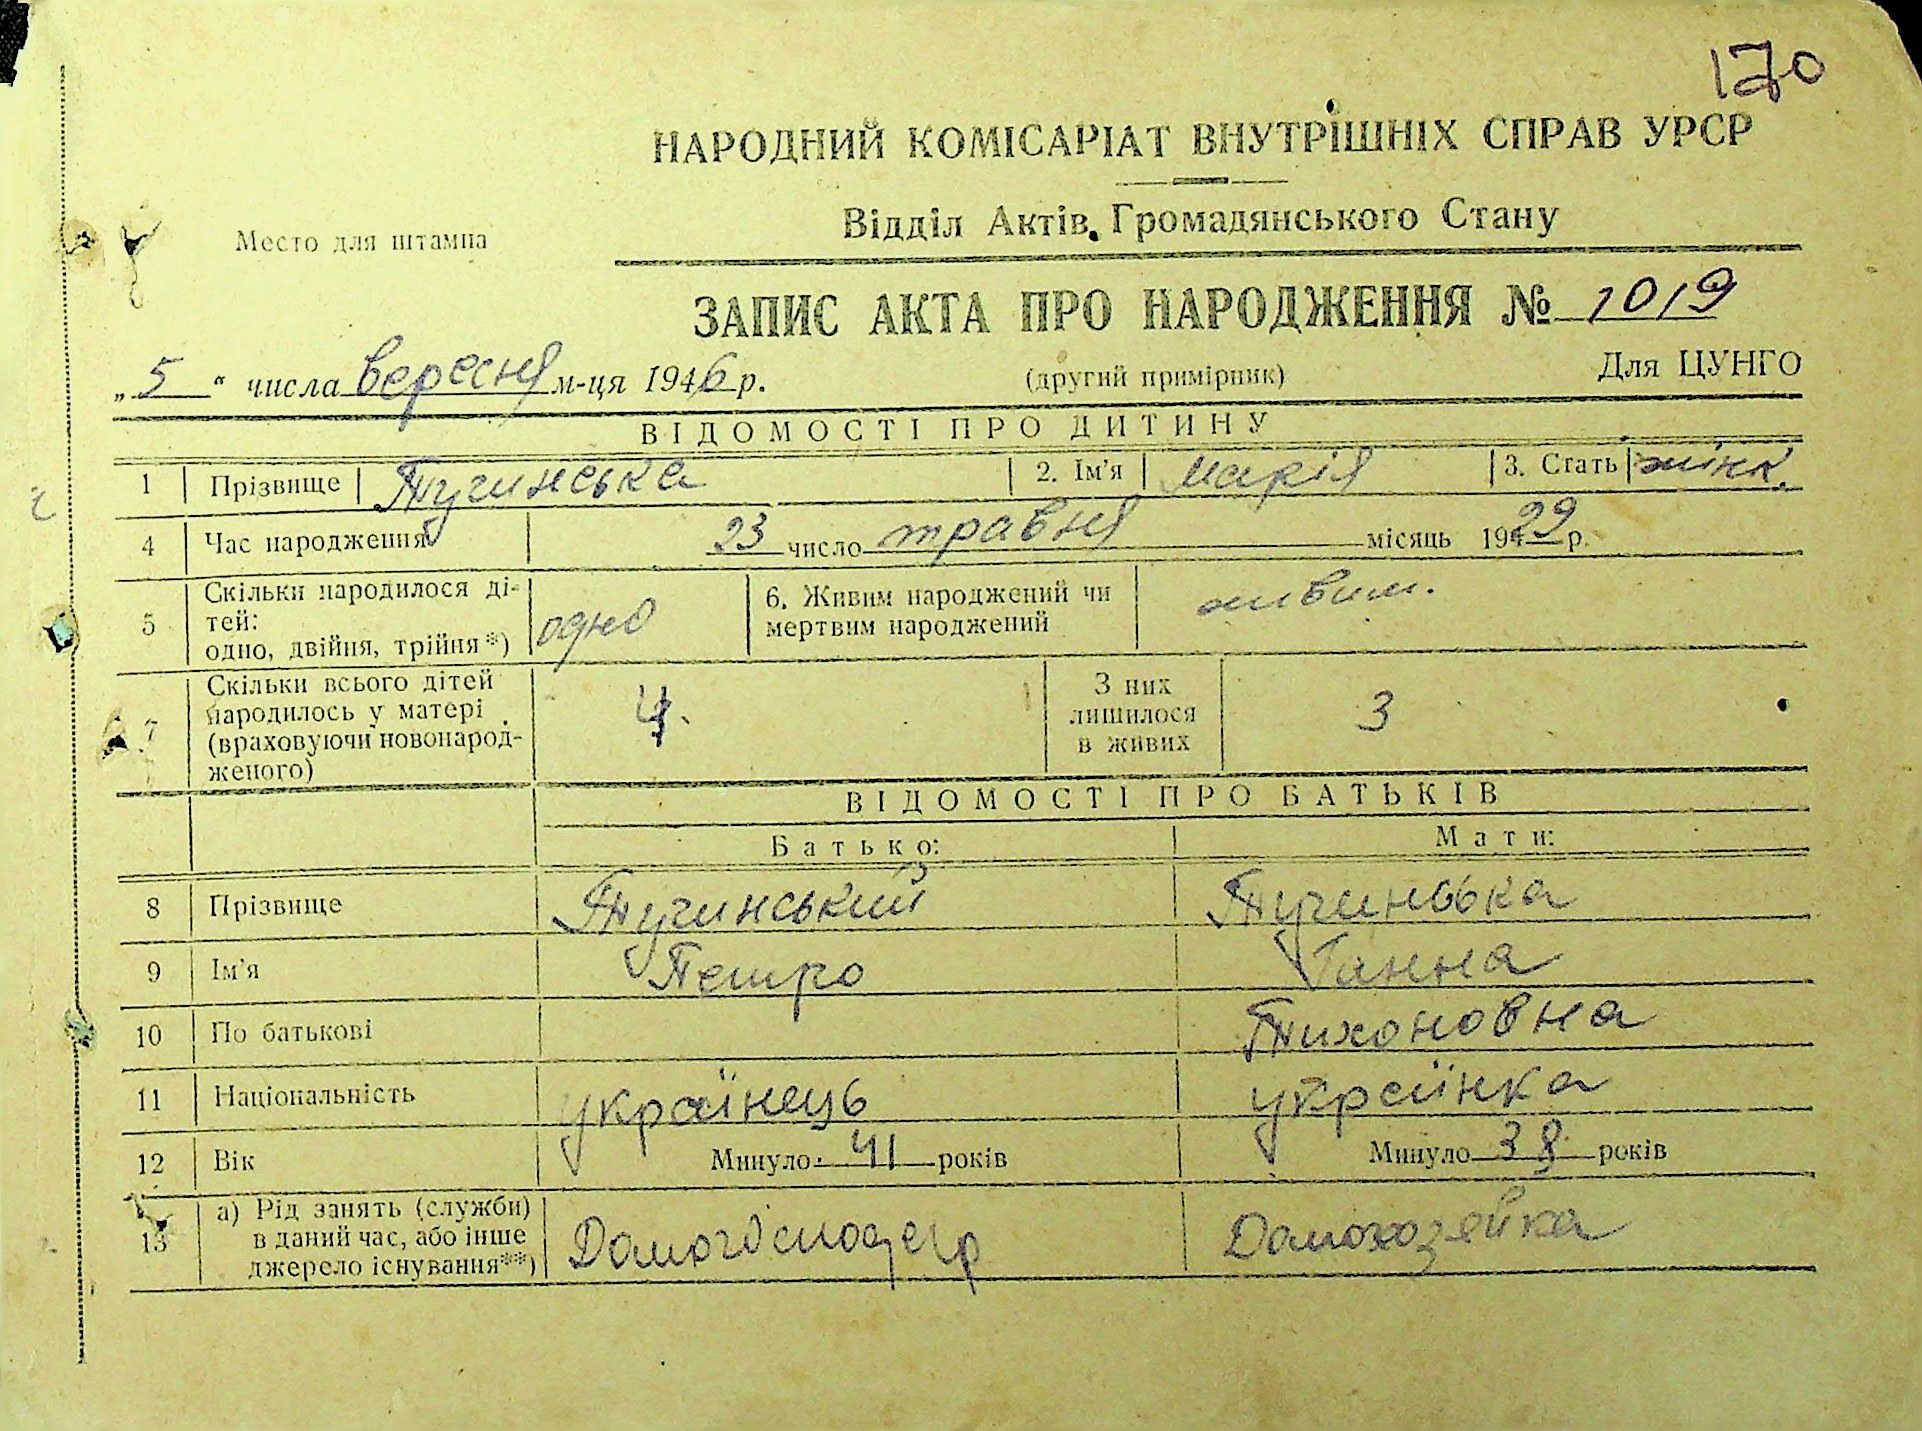 170
НАРОДНИЙ КОМІСАРІАТ ВНУТРІШНІХ СПРАВ УРСР
Відділ Актів Громадянського Стану
Место для штампа
ЗАПИС АКТА ПРО НАРОДЖЕННЯ № 1019
„5" числа вересня м-ця 1946 р. (другий примірник) Для ЦУНГО
ВІДОМОСТІ ПРО ДИТИНУ
1 Прізвище Тучинська 2. Ім'я Марія 3. Стать жінк.
4 Час народження 23 число травня місяць 1929 р.
5 Скільки народилося ді-
тей:
одно, двійня, трійня*) одно 6. Живим народжений чи
мертвим народжений живим.
7 Скільки всього дітей
народилось у матері
(враховуючи новонарод-
женого) 4. З них
лишилося
в живих 3
ВІДОМОСТІ ПРО БАТЬКІВ
Батько: Мати:
8 Прізвище Тучинський Тучинська
9 Ім'я Петро Ганна
10 По батькові Тихоновна
11 Національність українець українка
12 Вік Минуло 41 років Минуло 38 років
13 а) Рід занять (служби)
в даний час, або інше
джерело існування**) Домогосподар Домохозяйка